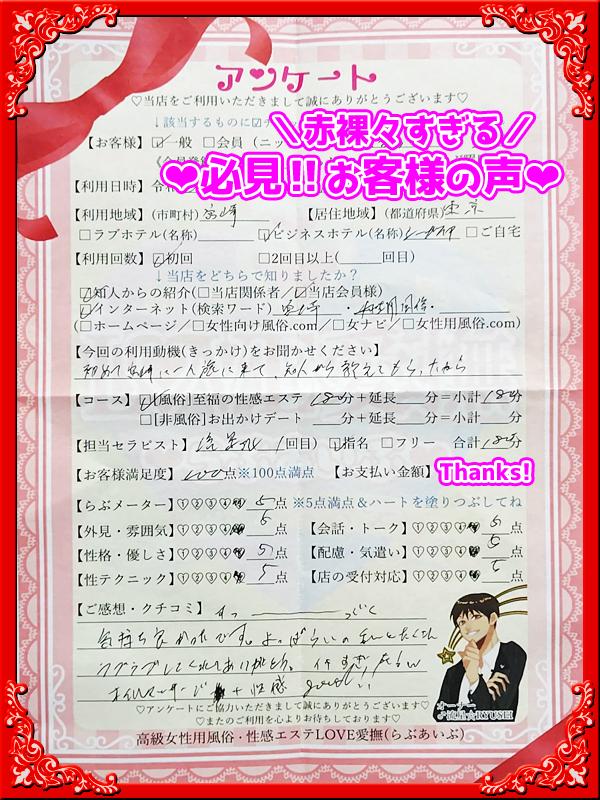 アンケート
♡当店をご利用いただきまして誠にありがとうございます♡
↓該当するものに☑
＼赤裸々すぎる／
【お客様】☑一般 □会員
❤必見!!お客様の声❤
【利用日時】
【利用地域】(市町村)宮崎 【居住地域】(都道府県)東京
□ラブホテル(名称) ☑ビジネスホテル(名称) □ご自宅
【利用回数】☑初回 □2回目以上( 回目)
↓当店をどちらで知りましたか?
☑知人からの紹介(□当店関係者/☑当店会員様)
☑インターネット(検索ワード)宮崎・女性用風俗・
(□ホームページ/□女性向け風俗.com/□女ナビ/□女性用風俗.com)
【今回の利用動機(きっかけ)をお聞かせください】
初めて宮崎に一人旅に来て、知人から教えてもらったから
【コース】☑[風俗]至福の性感エステ 180分+延長 分=小計180分
□[非風俗]お出かけデート 分+延長 分=小計 分
【担当セラピスト】流星 (1回目) ☑指名 □フリー 合計180分
【お客様満足度】100点※100点満点 【お支払い金額】Thanks!
【らぶメーター】①②③④ 5点 ※5点満点&ハートを塗りつぶしてね
【外見・雰囲気】①②③④ 5点 【会話・トーク】①②③④ 5点
【性格・優しさ】①②③④ 5点 【配慮・気遣い】①②③④ 5点
【性テクニック】①②③④ 5点 【店の受付対応】①②③④ 5点
【ご感想・クチコミ】すっ ごく
気持ち良かったです。よっぱらいの私とたくさん
ラブラブしてくれてありがとう。イキすぎたらw
オイルマッサージ + 性感 good!!
♡アンケートにご協力いただきまして誠にありがとうございます♡
♡またのご利用を心よりお待ちしております♡
オーナー
♂流星☆RYUSEI
高級女性用風俗・性感エステLOVE愛撫(らぶあいぶ)